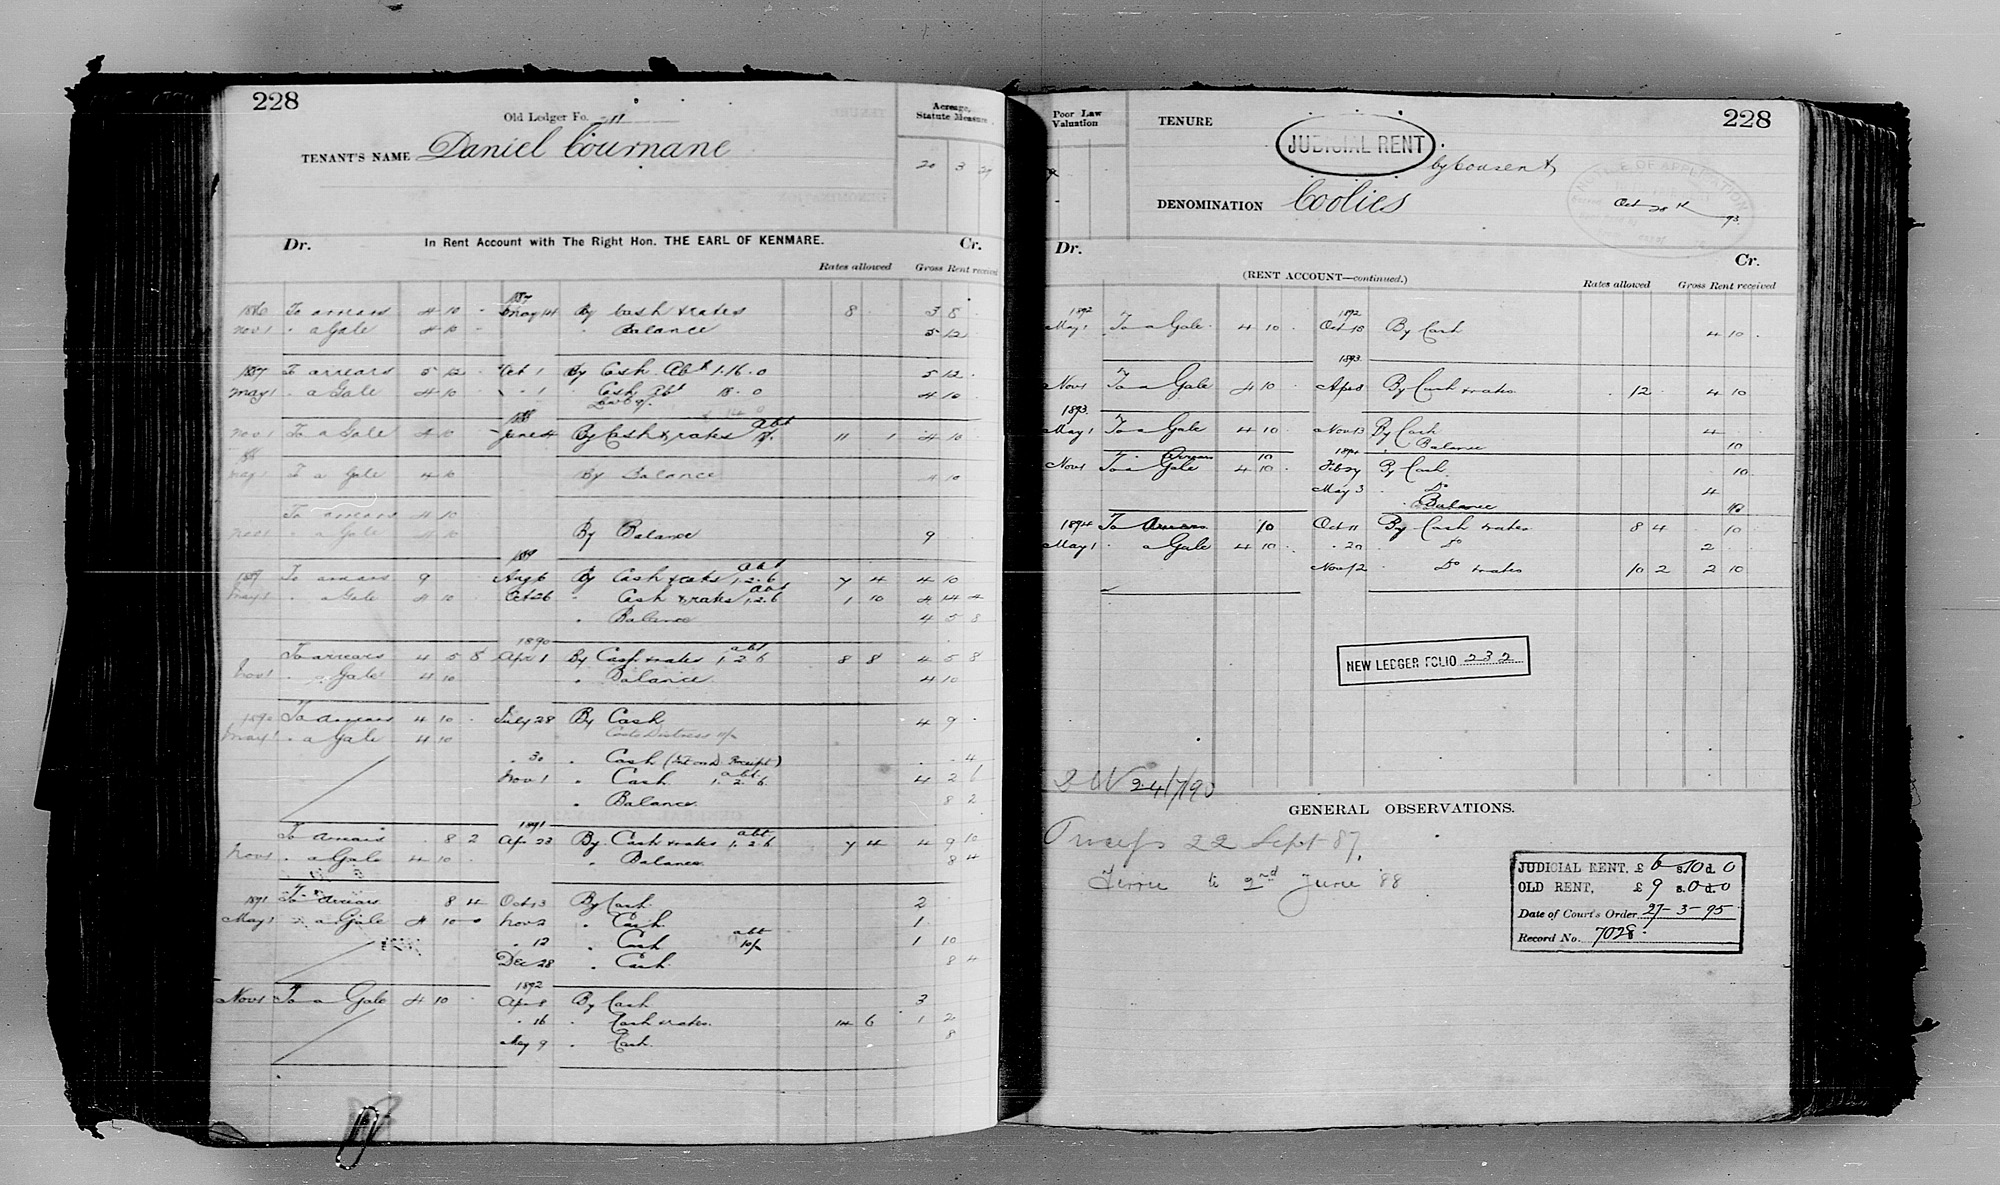 228
Old Ledger Fo. 11
TENANT'S NAME Daniel Cournane
Acreage, Statute Measure
20 3 29
Dr. In Rent Account with The Right Hon. THE EARL OF KENMARE. Cr.
Rates allowed Gross Rent received
1887
1886 To arrears 4 10 - May 14 By Cash & rates 8 - 3 8 -
Nov 1 " a Gale 4 10 - " Balance 5 12 -
1887 To arrears 5 12 - Oct 1 By Cash Abt 1.16.0 5 12 -
May 1 " a Gale 4 10 " 1 " Cash Abt 18.0 4 10 -
1888
Nov 1 To a Gale 4 10 June 4 By Cash & rates abt 18/- 11 1 4 10
88
May 1 To a Gale 4 10 By Balance 4 10
To arrears 4 10
Nov 1 " a Gale 4 10 By Balance 9
1889
1889 To arrears 9 Aug 6 By Cash & rates abt 1.2.6 7 4 4 10
May 1 " a Gale 4 10 Oct 26 " Cash & rates abt 1.2.6 1 10 4 14 4
" Balance 4 5 8
1890
To arrears 4 5 8 Apr 1 By Cash & rates abt 1.2.6 8 8 4 5 8
Nov 1 " a Gale 4 10 " Balance 4 10
1890 To arrears 4 10 - July 28 By Cash 4 9 -
May 1 " a Gale 4 10 Costs Distress 11/-
" 30 " Cash (Receipt) - - 4
Nov 1 " Cash abt 1.2.6 4 2 6
" Balance 8 2
1891
To arrears 8 2 Apr 23 By Cash & rates abt 1.2.6 7 4 4 9 10
Nov 1 " a Gale 4 10 - " Balance 8 4
1891 To arrears 8 4 Oct 13 By Cash 2
May 1 " a Gale 4 10 0 Nov 2 " Cash 1
" 12 " Cash abt 10/- 1 10
Dec 28 " Cash 8 4
1892
Nov 1 To a Gale 4 10 - Apr 8 By Cash 3
" 16 " Cash & rates 14 6 1 2
May 9 " Cash 8
Poor Law Valuation
TENURE
JUDICIAL RENT
by Consent
228
DENOMINATION Coolies
NOTICE OF APPLICATION
Oct 28th 93
Dr. Cr.
(RENT ACCOUNT—continued.)
Rates allowed Gross Rent received
1892 1892
May 1 To a Gale 4 10 - Oct 15 By Cash 4 10 -
1893
Nov 1 To a Gale 4 10 - Apr 8 By Cash & rates 12 - 4 10
1893
May 1 To a Gale 4 10 - Nov 13 By Cash 4
" Balance 10
1894
To Arrears 10
Nov 1 To a Gale 4 10 - Feb 27 By Cash 10
May 3 " Do 4
" Balance 10
1894 To Arrears 10 Oct 11 By Cash & rates 8 4 10
May 1 " a Gale 4 10 - " 20 " Do 2
Nov 12 Do & rates 10 2 2 10
NEW LEDGER FOLIO 232
24/7/90
GENERAL OBSERVATIONS.
22 Sept 87,
to 2nd June '88
JUDICIAL RENT, £6 s.10 d.0
OLD RENT, £9 s.0 d.0
Date of Court's Order 27-3-95
Record No. 7028